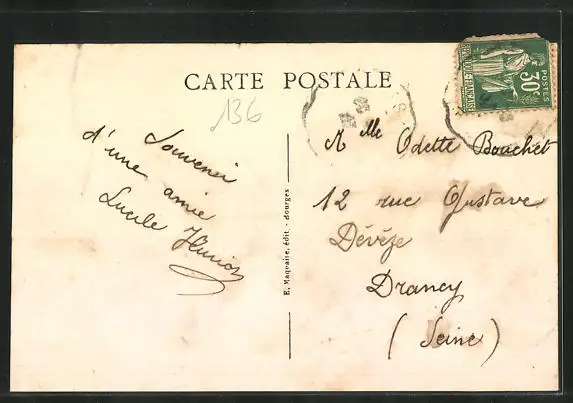 CARTE POSTALE
136
Souvenir
d'une amie
Lucile
Mlle Odette Bouchet
12 rue Gustave
Dévèze
Drancy
(Seine)
E. Maquaire, édit. - dourges
POSTES
30c
REPUBLIQUE FRANÇAISE